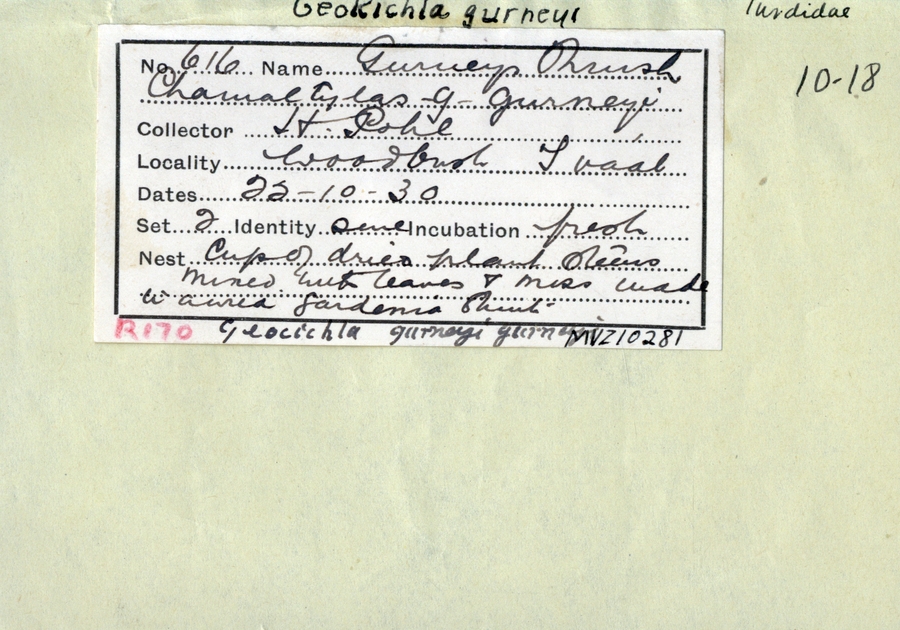 Geokichla gurneyi
Turdidae
10-18
No. 616 Name Gurneys Thrush
Chamaetylas g- gurneyi
Collector H. Pohl
Locality Woodbush Tvaal
Dates 22-10-30
Set 2 Identity sure Incubation fresh
Nest Cup of dried plant stems
mixed with leaves & moss made
in a Gardenia Shrub
R170 Geocichla gurneyi gurneyi MVZ10281